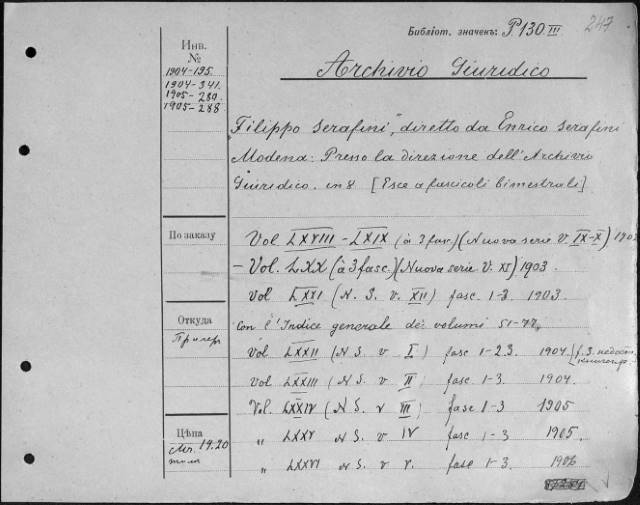 Библіот. значекъ: P130 III 247
Инв. №
1904-195.
1904-341.
1905-280.
1905-288.
Archivio Giuridico
„Filippo Serafini", diretto da Enrico Serafini
Modena: Presso la direzione dell'Archivio
Giuridico. in 8 [Esce a fascicoli bimestrali]
По заказу
Vol LXVIII - LXIX (à 3 fasc.) (Nuova serie V. IX-X) 1902
- Vol. LXX (à 3 fasc.) (Nuova serie V. XI) 1903.
Vol LXXI (N. S. v. XII) fasc. 1-3. 1903.
Откуда
con l'Indice generale dei volumi 51-77
Vol LXXII (N S. v I.) fasc 1-2.3. 1904. (f. 3.
Vol LXXIII (N S. v II) fasc. 1-3. 1904.
Vol. LXXIV (N S. v III) fasc 1-3 1905
Цѣна
Mr. 19.20
„ LXXV N S. v IV fasc. 1-3 1905.
„ LXXVI N S. v V. fasc 1-3. 1906